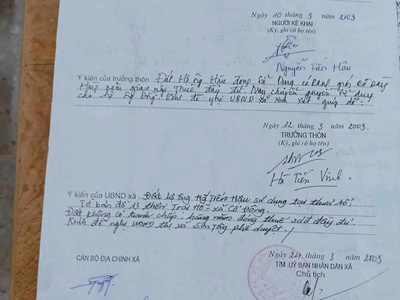 Ngày 10 tháng 3 năm 2003
NGƯỜI KÊ KHAI
(Ký, ghi rõ họ tên)
Nguyễn Tiến Hậu
Ý kiến của trưởng thôn: Đất Hộ ông Hậu đang sử dụng có
Hàng năm giao nộp Thuế đầy đủ Nay chuyển quyền
cho hộ ông đề nghị UBND xã xem xét giúp đỡ.
Ngày 12 tháng 3 năm 2003.
TRƯỞNG THÔN
(Ký, ghi rõ họ tên)
Hà Tiến Vinh
Ý kiến của UBND xã: Đất hộ ông Tiến Hậu sử dụng tại thửa số:
Tờ bản đồ 13 thôn Trại Hồ - xã Cổ Đông.
Đất không có tranh chấp, hàng năm đóng thuế đầy đủ.
Kính đề nghị UBND thị xã Sơn Tây phê duyệt.
Ngày 24 tháng 3 năm 2003
CÁN BỘ ĐỊA CHÍNH XÃ
T/M. UỶ BAN NHÂN DÂN XÃ
Chủ tịch